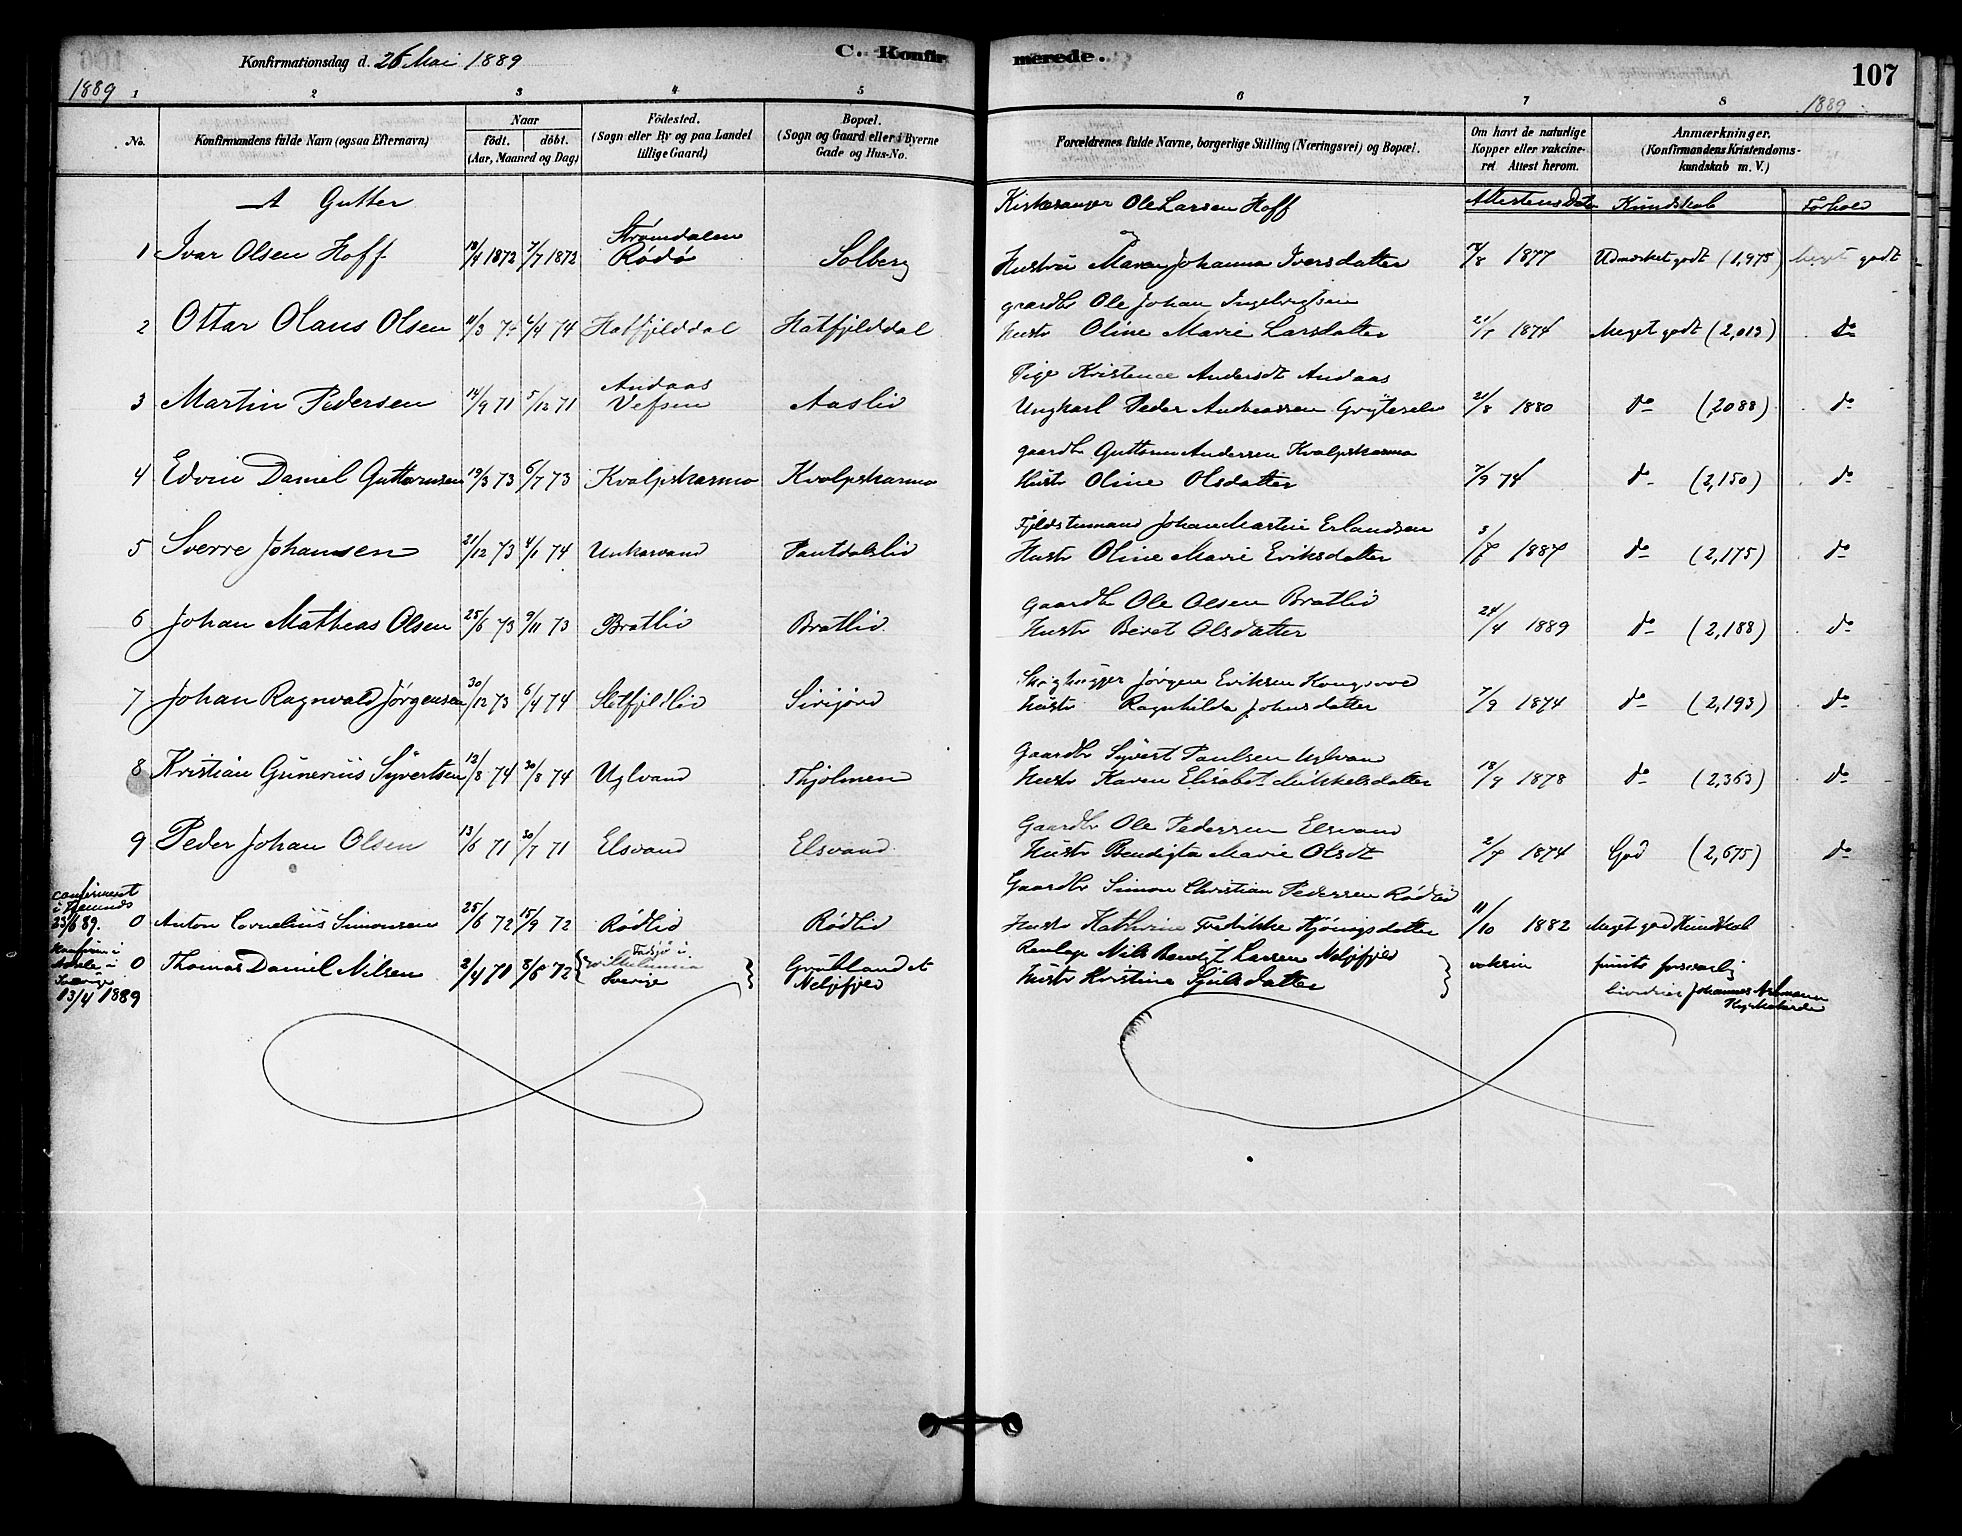 Konfirmationsdag d. 26 Mai 1889
C. Konfirmerede.
107
1889
1889
1 2 3 4 5 6 7 8
No.
Konfirmandens fulde Navn (ogsaa Efternavn)
Naar
født. døbt.
(Aar, Maaned og Dag)
Fødested.
(Sogn eller By og paa Landet
tillige Gaard)
Bopæl.
(Sogn og Gaard eller i Byerne
Gade og Hus-No.
Forældrenes fulde Navne, borgerlige Stilling (Næringsvei) og Bopæl.
Om havt de naturlige
Kopper eller vakcine-
ret Attest herom.
Anmærkninger.
(Konfirmandens Kristendoms-
kundskab m. V.)
A Gutter
Attestens Dato Kundskab Forhold
Kirkesanger Ole Larsen Hoff
1 Ivar Olsen Hoff 18/4 1872 7/7 1872 Strømdalen Rødø Solberg
Hustru Maren Johanna Iversdatter 1877 Udmærket godt (1,975) meget godt
gaardb Ole Johan Ingebrigtsen
2 Ottar Olaus Olsen 11/3 74 6/4 74 Hatfjelddal Hatfjelddal
Hustr Oline Marie Larsdatter 21/7 1874 Meget godt (2,013) do
Pige Kristence Andersdt Andaas
3 Martin Pedersen 14/9 71 5/12 71 Andaas Vefsen Aaslid
Ungkarl Peder Andreassen Gryteselv 21/8 1880 do (2088) do
gaardb Guttorm Andersen Kvalpskarmo
4 Edvin Daniel Guttormsen 19/3 73 6/7 73 Kvalpskarmo Kvalpskarmo
Hustr Oline Olsdatter 7/9 74 do (2,150) do
Johan Martin Erlandsen
5 Sverre Johansen 21/12 73 4/1 74 Unkervand Pantdalslid
Hustr Oline Marie Eriksdatter 1887 do (2,175) do
Gaardb Ole Olsen Bratlid
6 Johan Matheas Olsen 25/6 73 9/11 73 Bratlid Bratlid
Hustr Beret Olsdatter 24/4 1889 do (2,188) do
Jørgen Eriksen
7 Johan Ragnvald Jørgensen 30/12 73 6/4 74 Sletfjeldlid Sirijord
Hustr Ragnhilda Johnsdatter 7/9 1874 do (2,193) do
Gaardb Syvert Paulsen
8 Kristian Gunerius Syvertsen 13/8 74 30/8 74 Uglvand Thjolmen
Hustr Karen Elisabet Mikkelsdatter 18/9 1878 do (2,363) do
Gaardb Ole Pedersen Elsvand
9 Peder Johan Olsen 13/6 71 30/7 71 Elsvand Elsvand
Hustr Bendigta Marie Olsdt 2/7 1874 God (2,675) do
Gaardb Simon Christian Pedersen Rødlid
confirmert i Hemnes 23/6 89.
0 Anton Cornelius Simonsen 25/6 72 15/9 72 Rødlid Rødlid
Hustr Kathrine Fredrikke 11/10 1882 Meget god Kundskab
0 Thomas Daniel Nilsen 2/4 70 72 Wilhelmina Sverige Grubland
Nils Bendigt Larsen
Hustr Kristina vaksin
13/4 1889